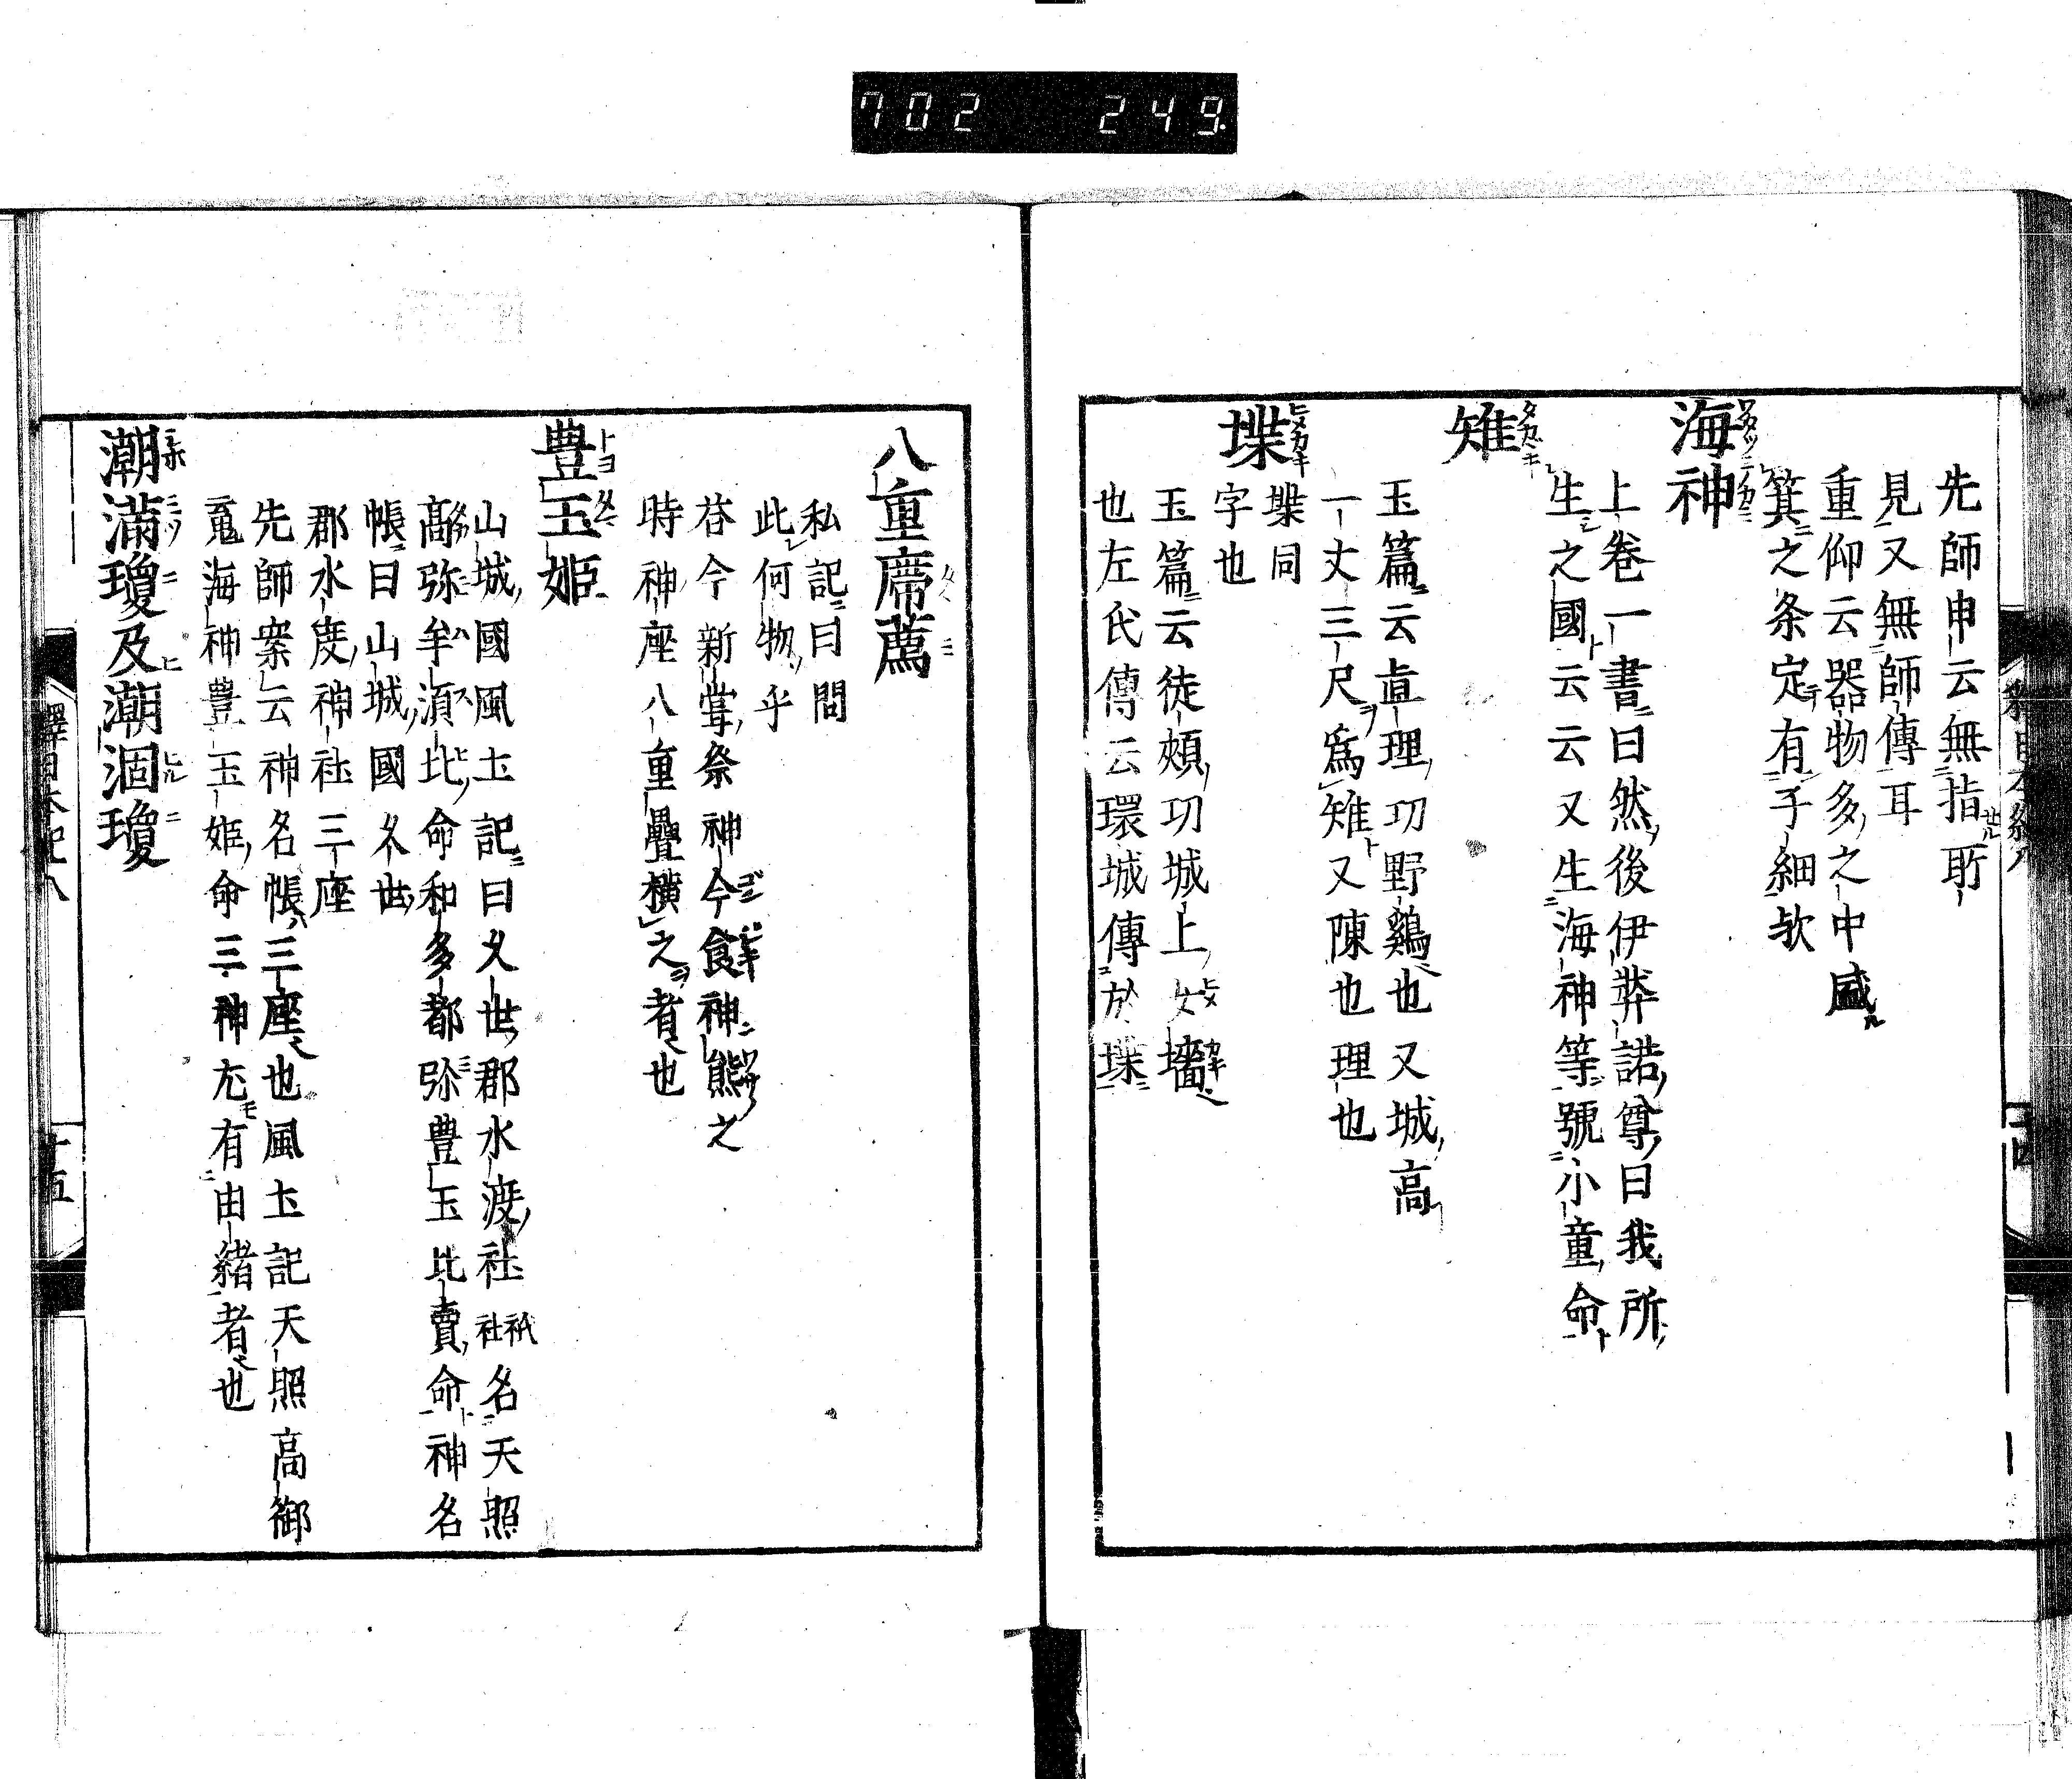 702 249
先師申云無指所
見又無師傳耳
重仰云器物多之中盛
箕之条定有子細欤
海神
上卷一書曰然後伊弉諾尊曰我所
生之國云云又生海神等號小童命
雉
玉篇云直理切野鷄也又城高
一丈三尺爲雉又陳也理也
堞
堞同
字也
玉篇云徒頰切城上女墻
也左氏傳云環城傳於堞
八重席薦
私記曰問
此何物乎
荅今新甞祭神今食神態之
時神座八重疊横之者也
豊玉姫
山城國風土記曰久世郡水渡社祇社名天照
高弥牟湏比命和多都弥豊玉比賣命神名
帳曰山城國久世
郡水度神社三座
先師案云神名帳三座也風土記天照高御
䰟海神豊玉姫命三神尤有由緒者也
潮滿瓊及潮涸瓊
釋日本紀八
十五